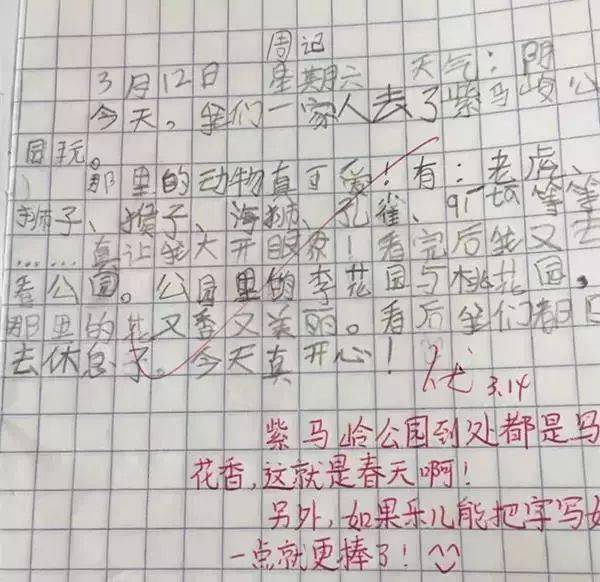 周记
3月12日 星期六 天气:阴
今天。我们一家人去了紫马岭公
园玩。
那里的动物真可爱!有:老虎、
狮子、猴子、海狮、孔雀、等等
……真让我大开眼界!看完后我又去
看公园。公园里的李花园与桃花园,
那里的花又香又美丽。看后我们都回
去休息了。今天真开心!
优 3.14
紫马岭公园到处都是鸟
花香,这就是春天啊!
另外,如果乐儿能把字写好
一点就更棒了!